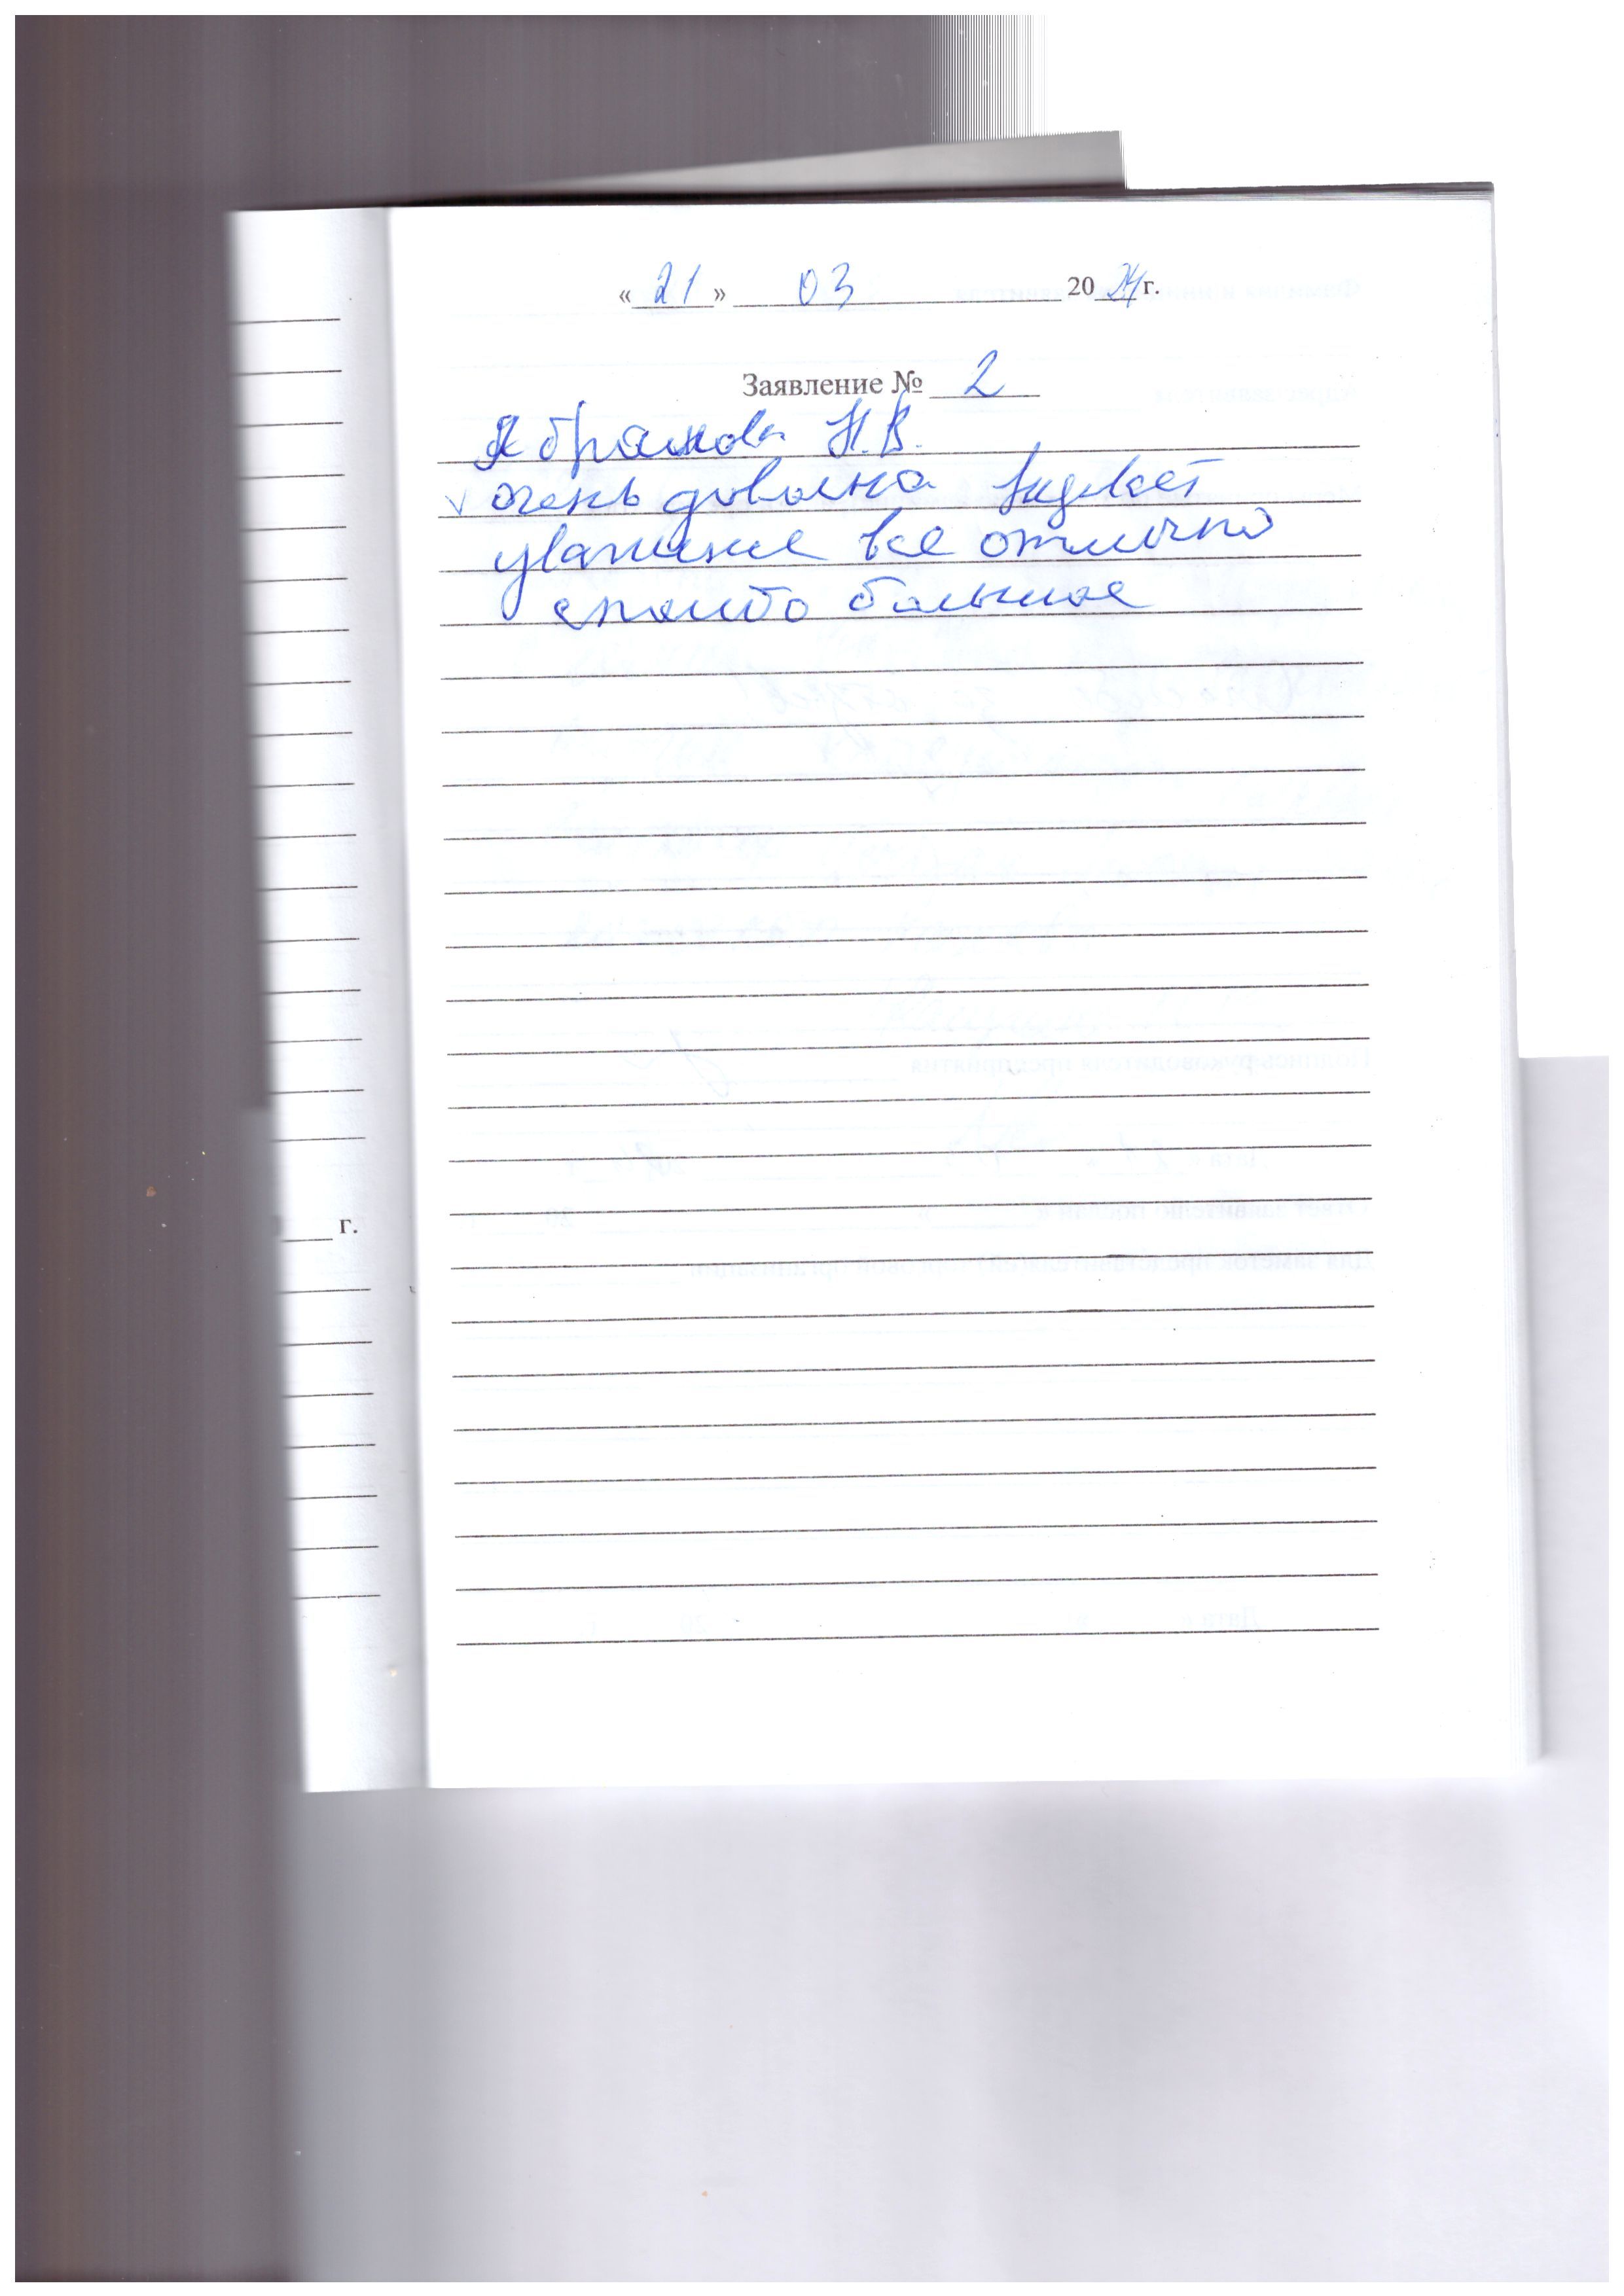 «21» 03 2024 г.
Заявление № 2
Абрамова Н.В.
очень довольна
уважение все отлично
спасибо большое
г.